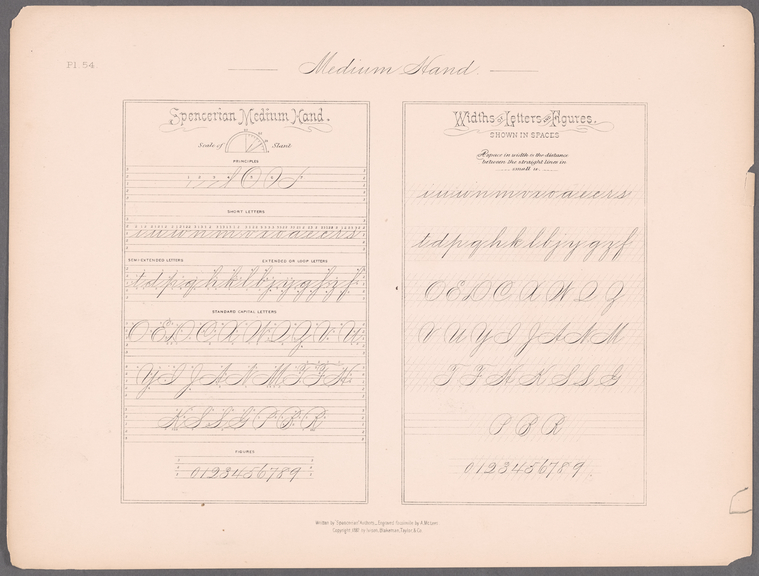 Pl. 54.
Medium Hand.
Spencerian Medium Hand.
Scale of Slant
PRINCIPLES
1 2 3 4 5 6 7
SHORT LETTERS
i u w n m v x o a e c r s
SEMI-EXTENDED LETTERS EXTENDED OR LOOP LETTERS
t d p q h k l b j y g z f
STANDARD CAPITAL LETTERS
O E D C X W Q Z V U
Y I J A N M T F H
K S L G P B R
FIGURES
0 1 2 3 4 5 6 7 8 9
Widths of Letters and Figures.
SHOWN IN SPACES
A space in width is the distance
between the straight lines in
small u.
i u w n m v x o a e c r s
t d p q h k l b j y g z f
O E D C X W Q Z
V U Y I J A N M
T F H K S L G
P B R
0 1 2 3 4 5 6 7 8 9
Copyright 1887 by Ivison, Blakeman, Taylor & Co.